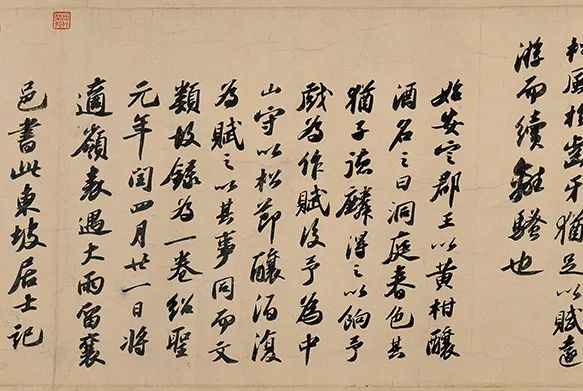 松風於齒牙猶足以賦遠
游而續離騷也
始安定郡王以黃柑釀
酒名之曰洞庭春色其
猶子德麟得之以餉予
戲為作賦後予為中
山守以松節釀酒復
為賦之以其事同而文
類故錄為一卷紹聖
元年閏四月廿一日將
適嶺表遇大雨留襄
邑書此東坡居士記